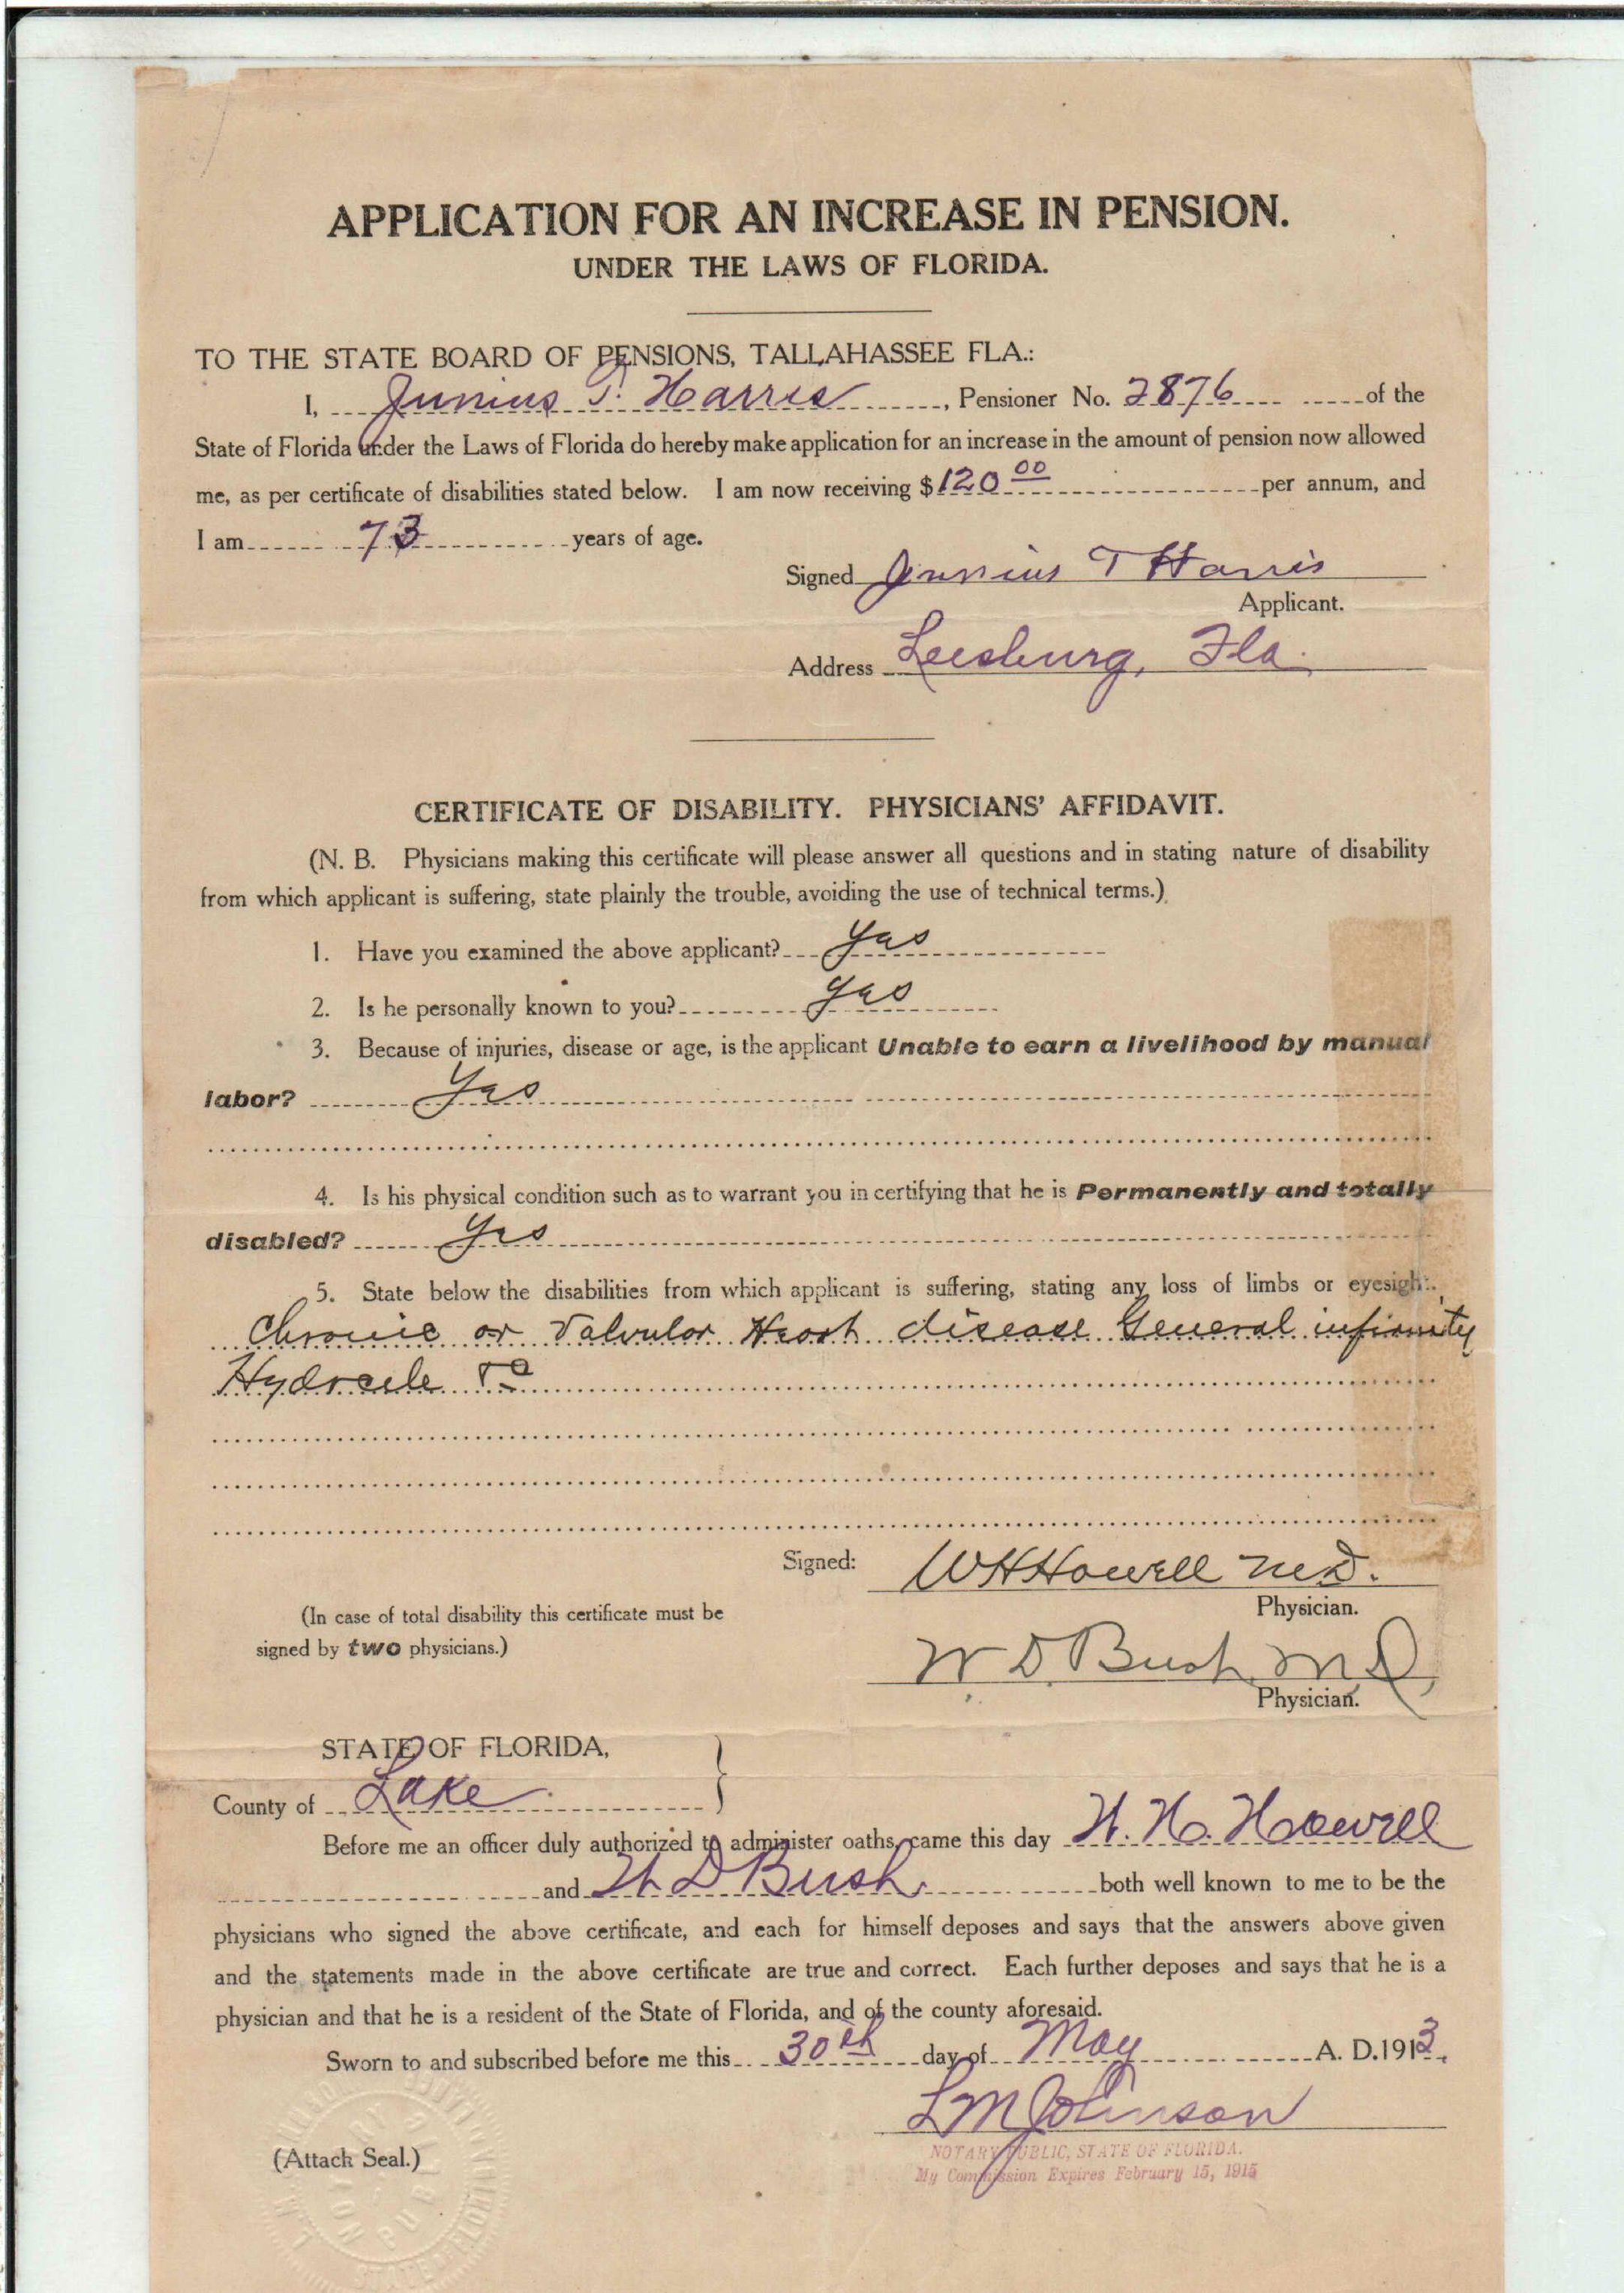 APPLICATION FOR AN INCREASE IN PENSION.
UNDER THE LAWS OF FLORIDA.
TO THE STATE BOARD OF PENSIONS, TALLAHASSEE FLA.:
I, Junius T. Harris, Pensioner No. 2876 of the
State of Florida under the Laws of Florida do hereby make application for an increase in the amount of pension now allowed
me, as per certificate of disabilities stated below. I am now receiving $120 00 per annum, and
I am 73 years of age.
Signed Junius T Harris
Applicant.
Address Leesburg, Fla.
CERTIFICATE OF DISABILITY. PHYSICIANS' AFFIDAVIT.
(N. B. Physicians making this certificate will please answer all questions and in stating nature of disability
from which applicant is suffering, state plainly the trouble, avoiding the use of technical terms.)
1. Have you examined the above applicant? yes
2. Is he personally known to you? yes
3. Because of injuries, disease or age, is the applicant Unable to earn a livelihood by manual
labor? Yes
4. Is his physical condition such as to warrant you in certifying that he is Permanently and totally
disabled? Yes
5. State below the disabilities from which applicant is suffering, stating any loss of limbs or eyesight.
Chronic or Valvular Heart disease General infirmity
Hydrocele
Signed: W H Howell M.D.
Physician.
(In case of total disability this certificate must be
signed by two physicians.)
W. D. Bush, M.D.
Physician.
STATE OF FLORIDA,
County of Lake
Before me an officer duly authorized to administer oaths, came this day W. H. Howell
and W D Bush both well known to me to be the
physicians who signed the above certificate, and each for himself deposes and says that the answers above given
and the statements made in the above certificate are true and correct. Each further deposes and says that he is a
physician and that he is a resident of the State of Florida, and of the county aforesaid.
Sworn to and subscribed before me this 30th day of May A. D. 1913.
L M Johnson
NOTARY PUBLIC, STATE OF FLORIDA.
My Commission Expires February 15, 1915
(Attack Seal.)